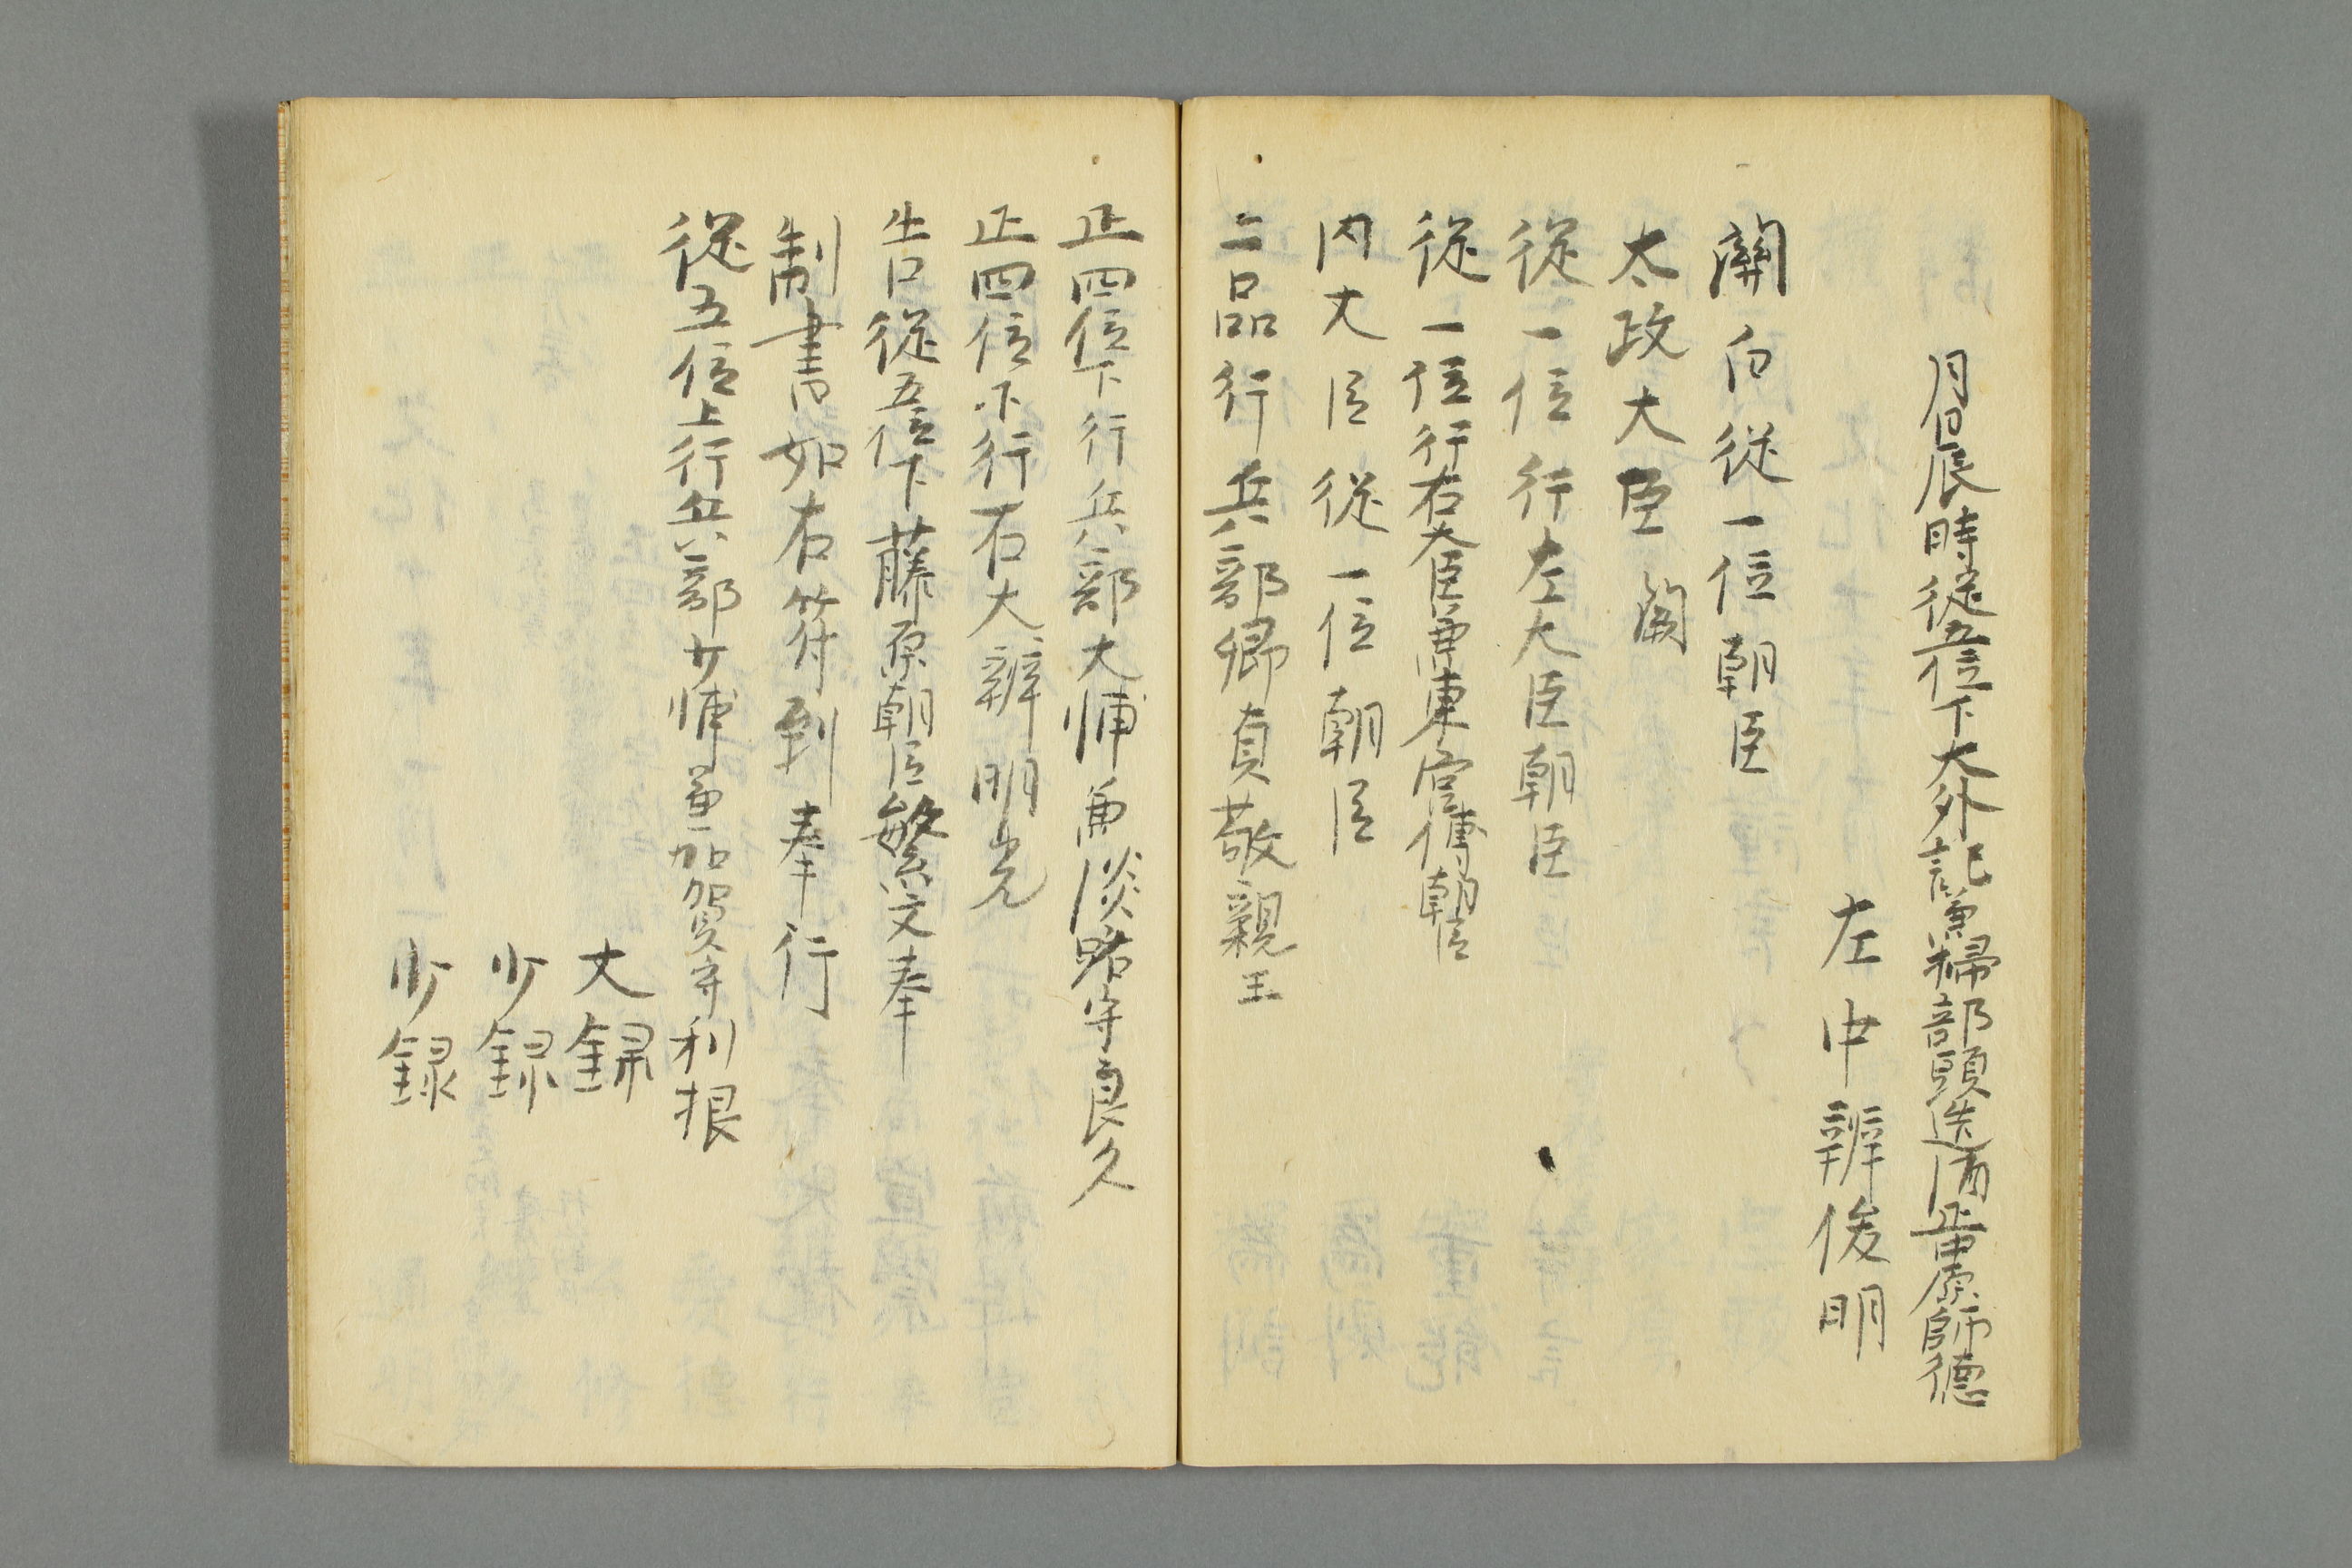 月日辰時従五位下大外記兼掃部頭造酒正中原師徳
左中辨俊明
關白従一位朝臣
太政大臣闕
従一位行左大臣朝臣
従一位行右大臣兼東宮傅朝臣
内大臣従一位朝臣
二品行兵部卿貞敬親王
正四位下行兵部大輔兼淡路守良久
正四位下行右大辨明光
告従五位下藤原朝臣繁文奉
制書如右符到奉行
従五位上行兵部少輔兼加賀守利根
大録
少録
少録